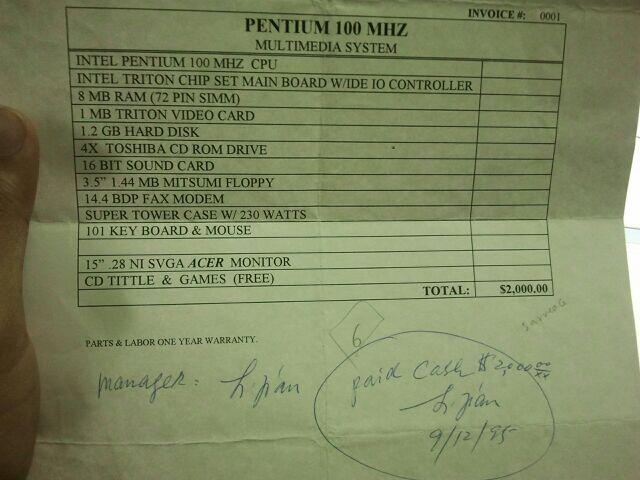 INVOICE #: 0001
PENTIUM 100 MHZ
MULTIMEDIA SYSTEM
INTEL PENTIUM 100 MHZ CPU
INTEL TRITON CHIP SET MAIN BOARD W/IDE IO CONTROLLER
8 MB RAM (72 PIN SIMM)
1 MB TRITON VIDEO CARD
1.2 GB HARD DISK
4X TOSHIBA CD ROM DRIVE
16 BIT SOUND CARD
3.5" 1.44 MB MITSUMI FLOPPY
14.4 BDP FAX MODEM
SUPER TOWER CASE W/ 230 WATTS
101 KEY BOARD & MOUSE
15" .28 NI SVGA ACER MONITOR
CD TITTLE & GAMES (FREE)
TOTAL: $2,000.00
6
PARTS & LABOR ONE YEAR WARRANTY.
manager: Li jian
paid cash $2,000 00/xx
Li jian
9/12/95